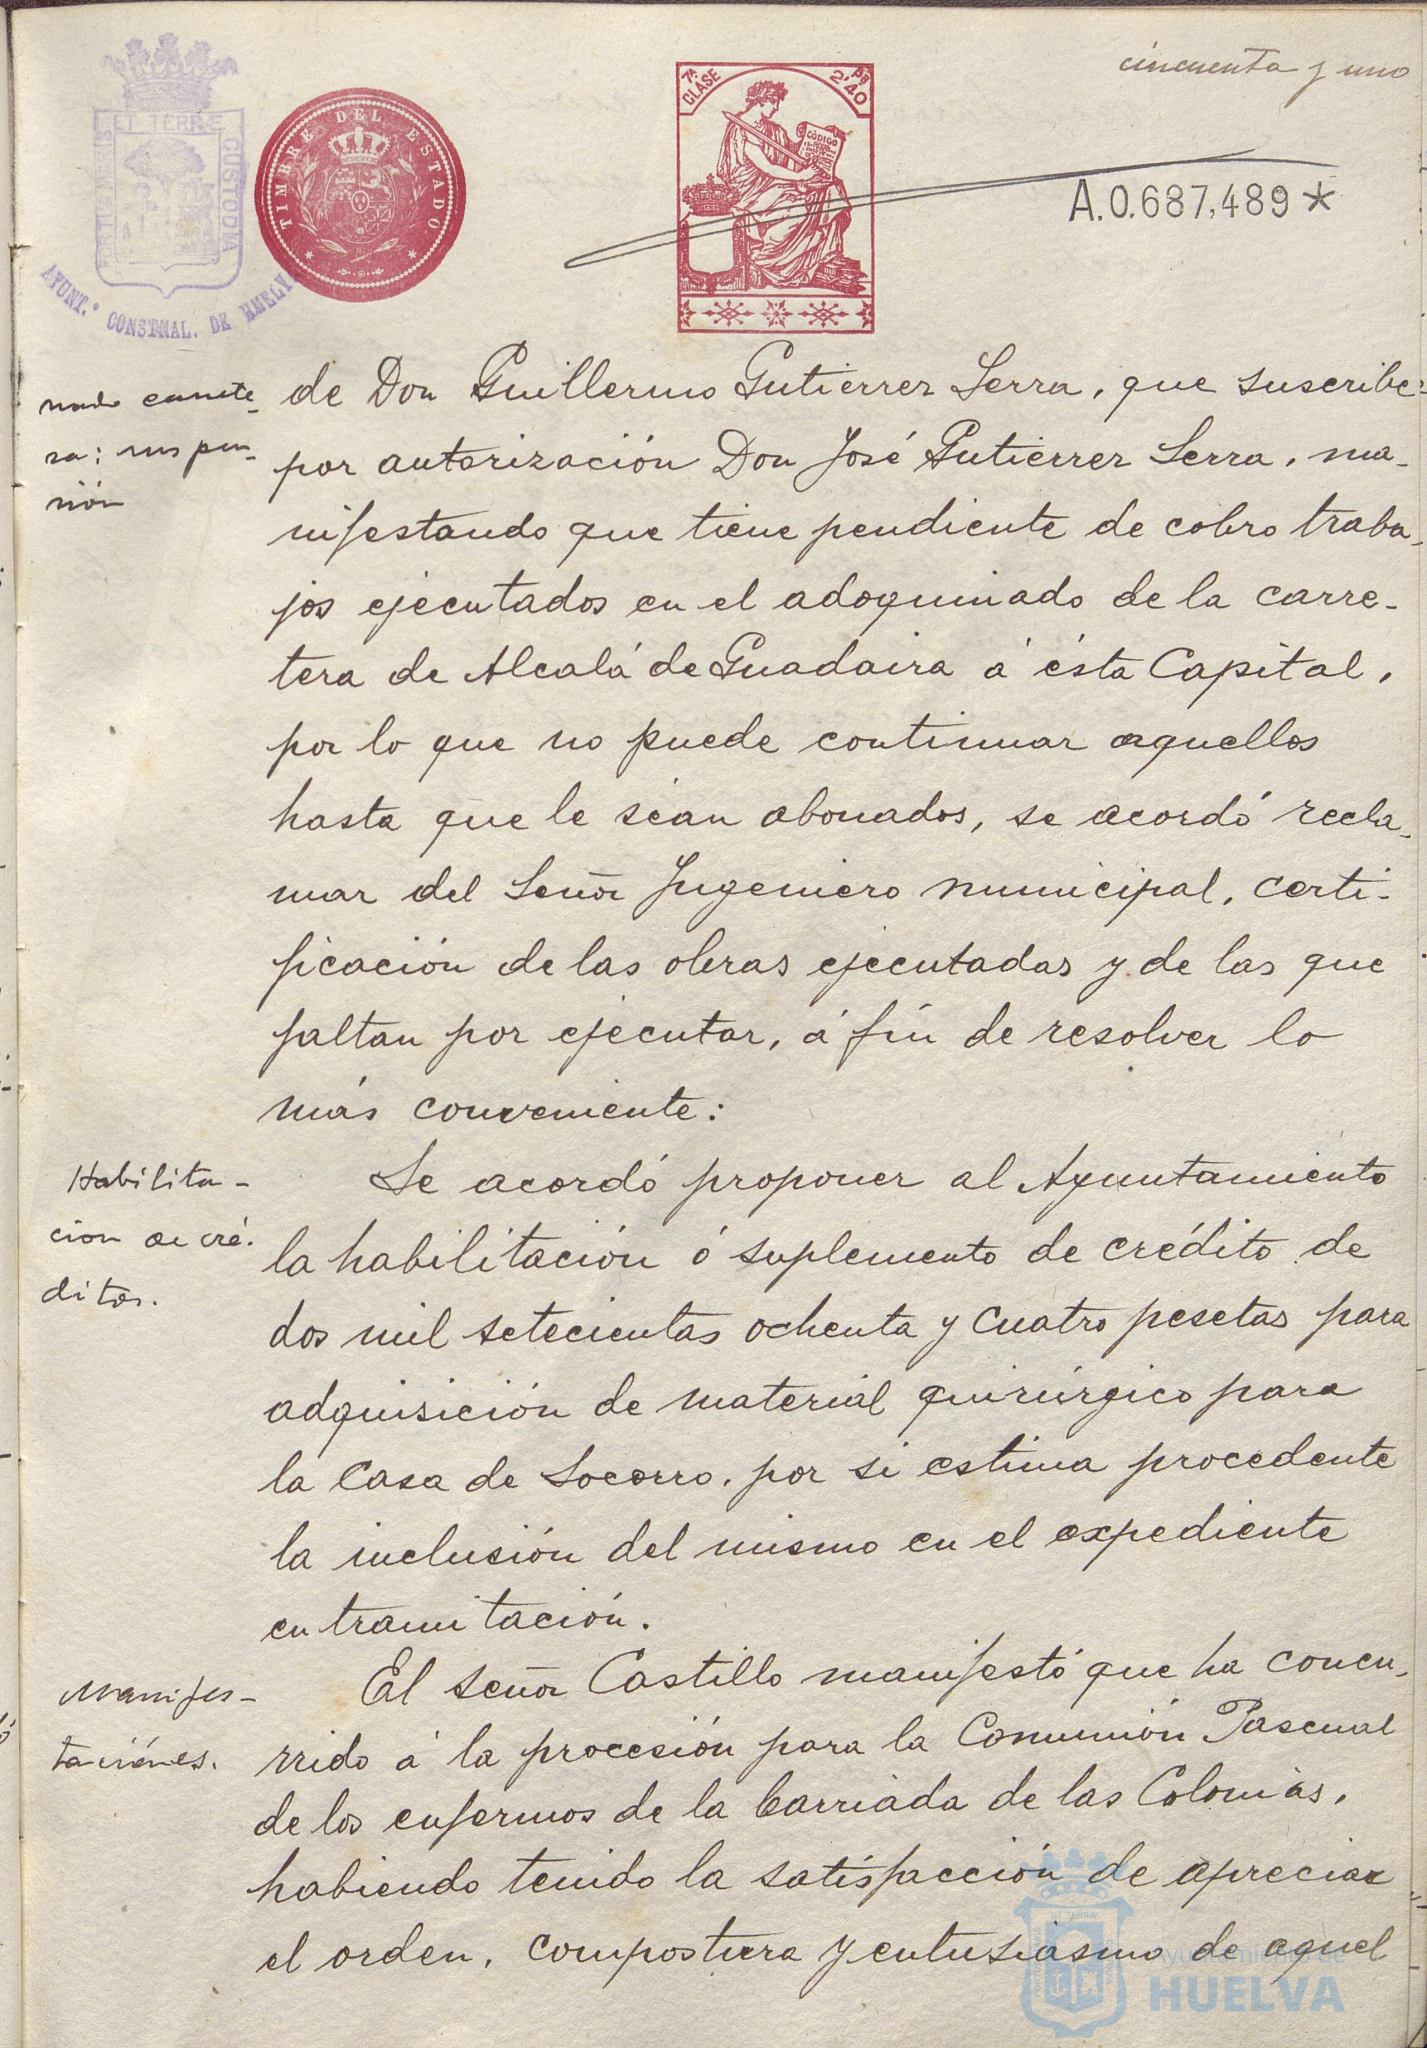 cincuenta y uno
ET TERRÆ
CUSTODIA
AYUNT.º CONSTNAL. DE HUELVA
TIMBRE DEL ESTADO
7ª CLASE
2'40
CÓDIGO
A.0.687,489*
nado carrete-
ra: suspen-
sión
de Don Guillermo Gutierrez Serra, que suscribe
por autorización Don José Gutierrez Serra, ma-
nifestando que tiene pendiente de cobro traba-
jos ejecutados en el adoquinado de la carre-
tera de Alcalá de Guadaira á ésta Capital,
por lo que no puede continuar aquellos
hasta que le sean abonados, se acordó recla-
mar del Señor Ingeniero municipal, certi-
ficación de las obras ejecutadas y de las que
faltan por ejecutar, á fin de resolver lo
más conveniente:
Habilita-
cion de cré-
ditos.
Se acordó proponer al Ayuntamiento
la habilitación ó suplemento de crédito de
dos mil setecientas ochenta y cuatro pesetas para
adquisición de material quirúrgico para
la Casa de Socorro, por si estima procedente
la inclusión del mismo en el expediente
en tramitación.
Manifes-
taciónes.
El señor Castillo manifestó que ha concu-
rrido á la procesión para la Comunión Pascual
de los enfermos de la barriada de las Colonias,
habiendo tenido la satisfacción de apreciar
el orden, compostura y entusiasmo de aquel
Ayuntamiento de
HUELVA